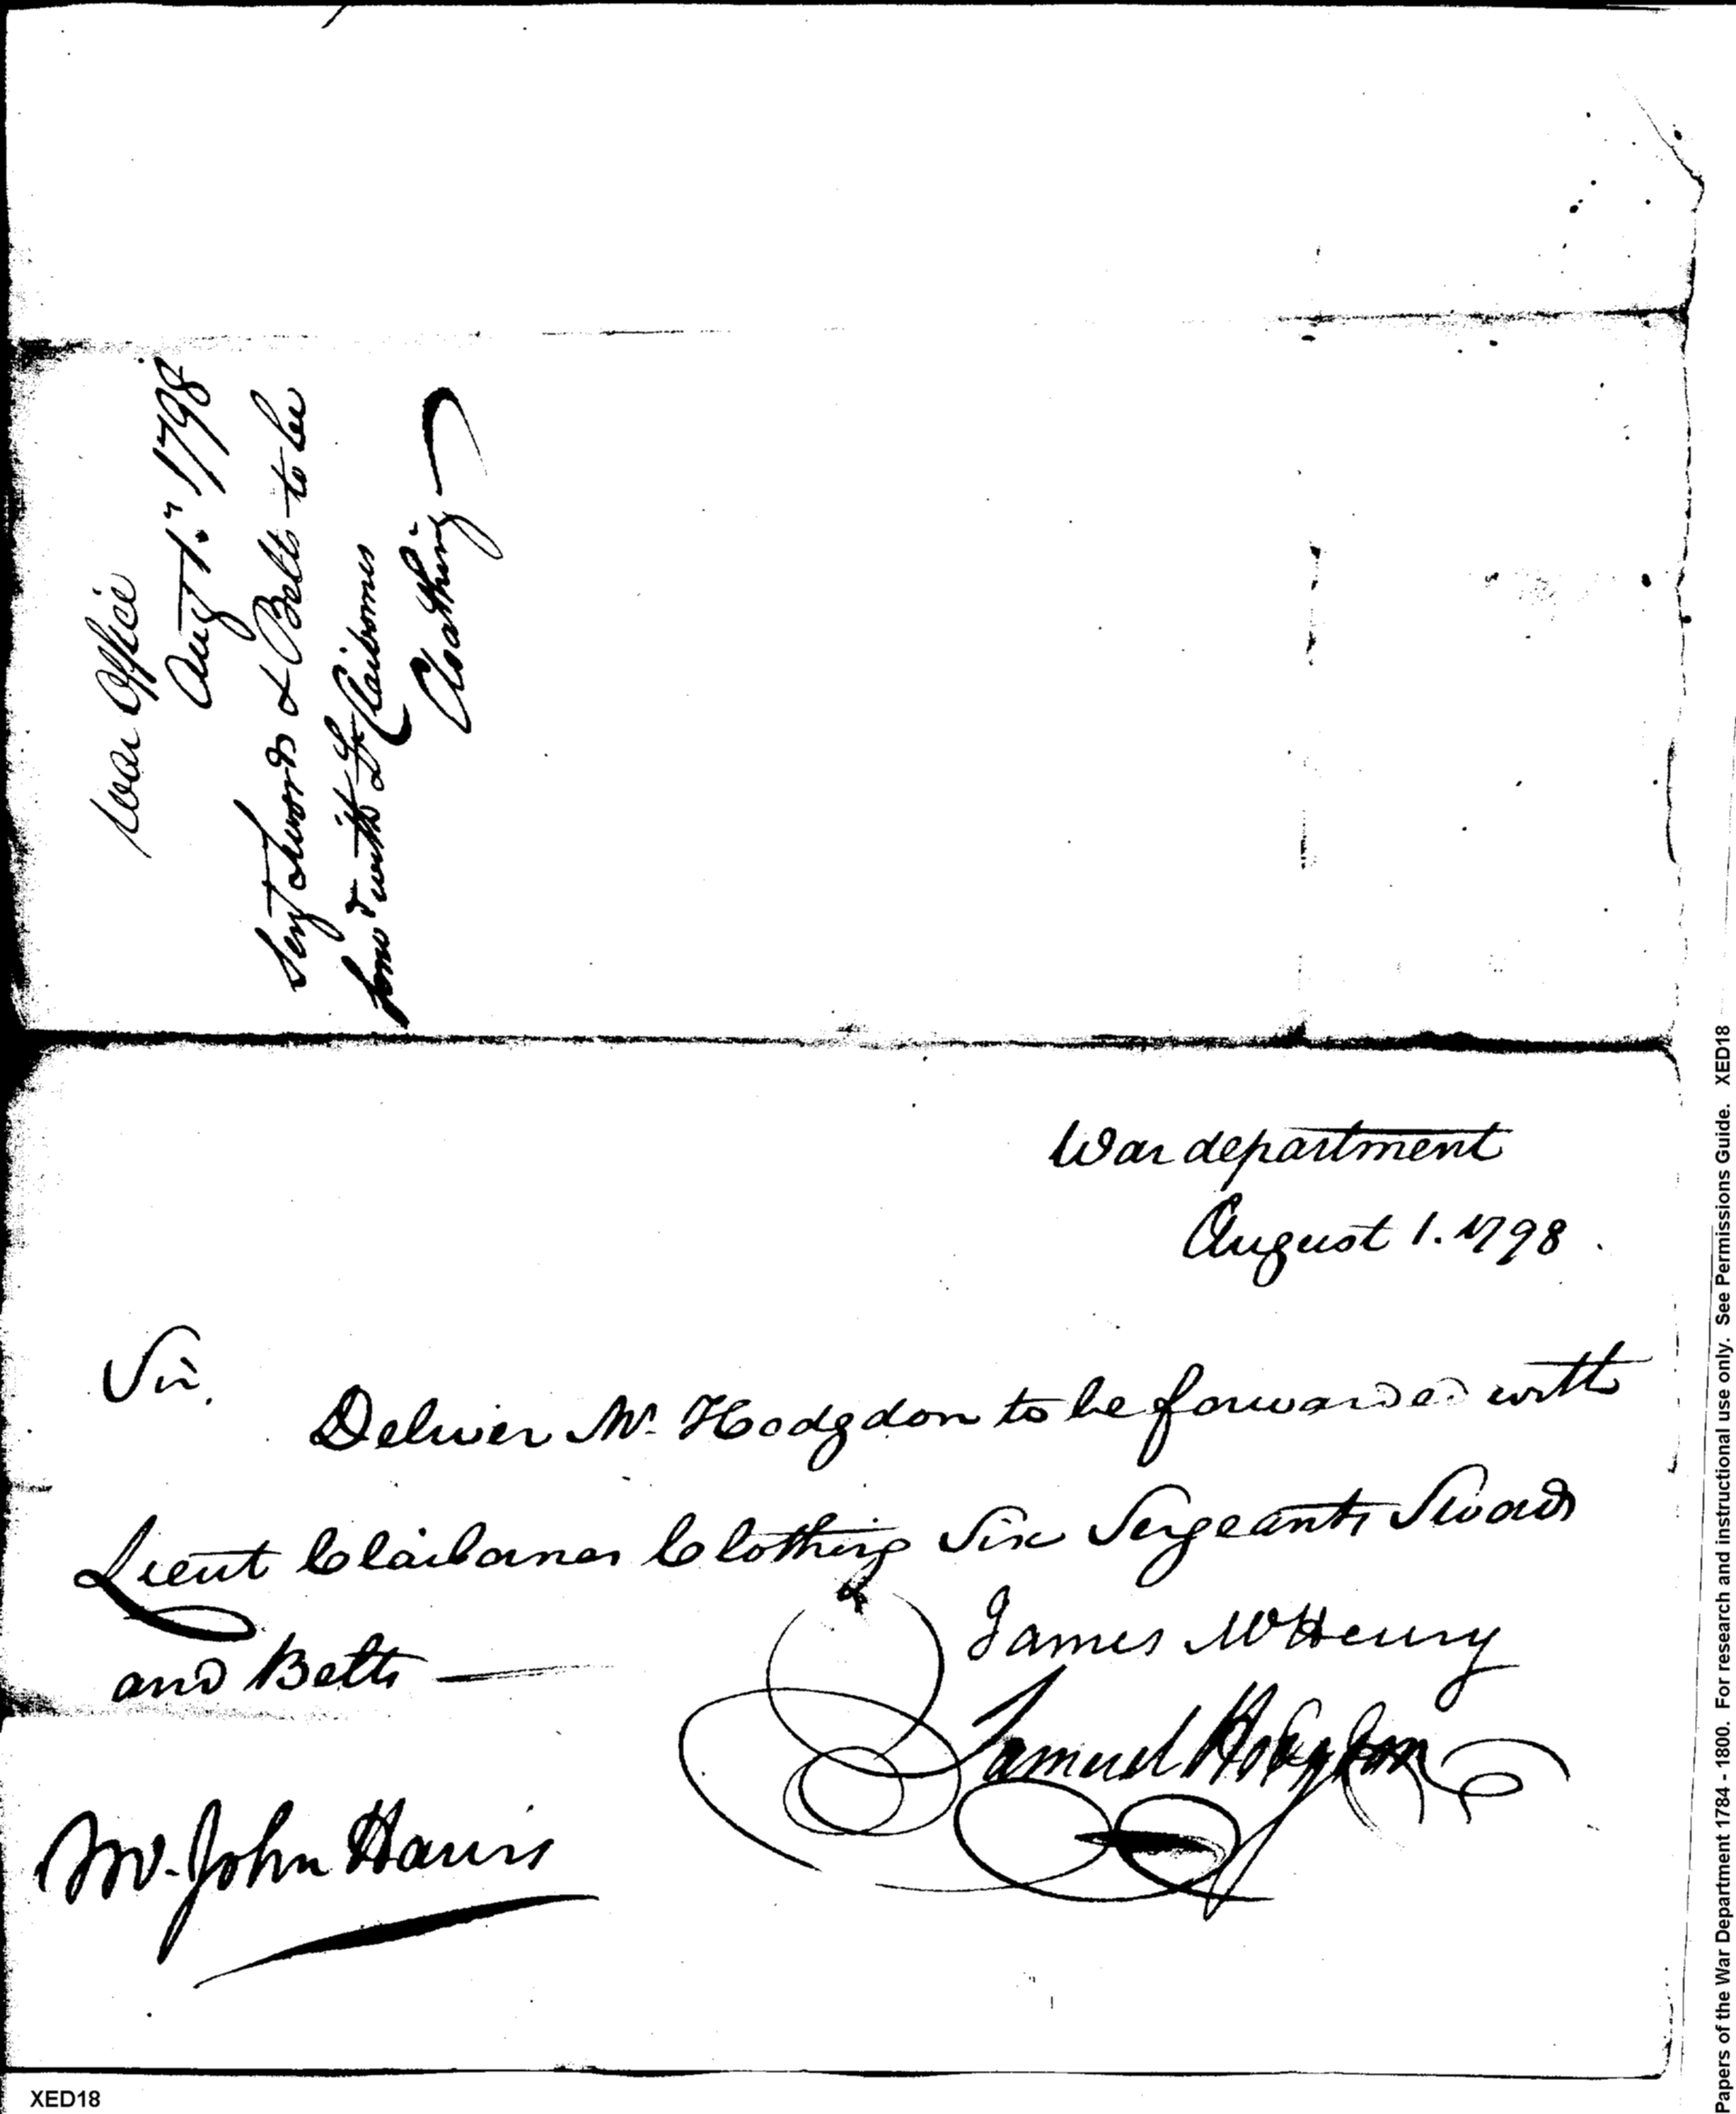 War Office
Augt 1st 1798
Sergt Swords & Belts to be
forwd with Lt Claibornes
Cloathing
War department
August 1. 1798.
Sir,
Deliver Mr. Hodgdon to be forwarded with
Lieut Claibornes Clothing Six Sergeants Swords
and Belts
James McHenry
Samuel Hodgdon
Mr. John Harris
XED18
Papers of the War Department 1784 - 1800. For research and instructional use only. See Permissions Guide. XED18